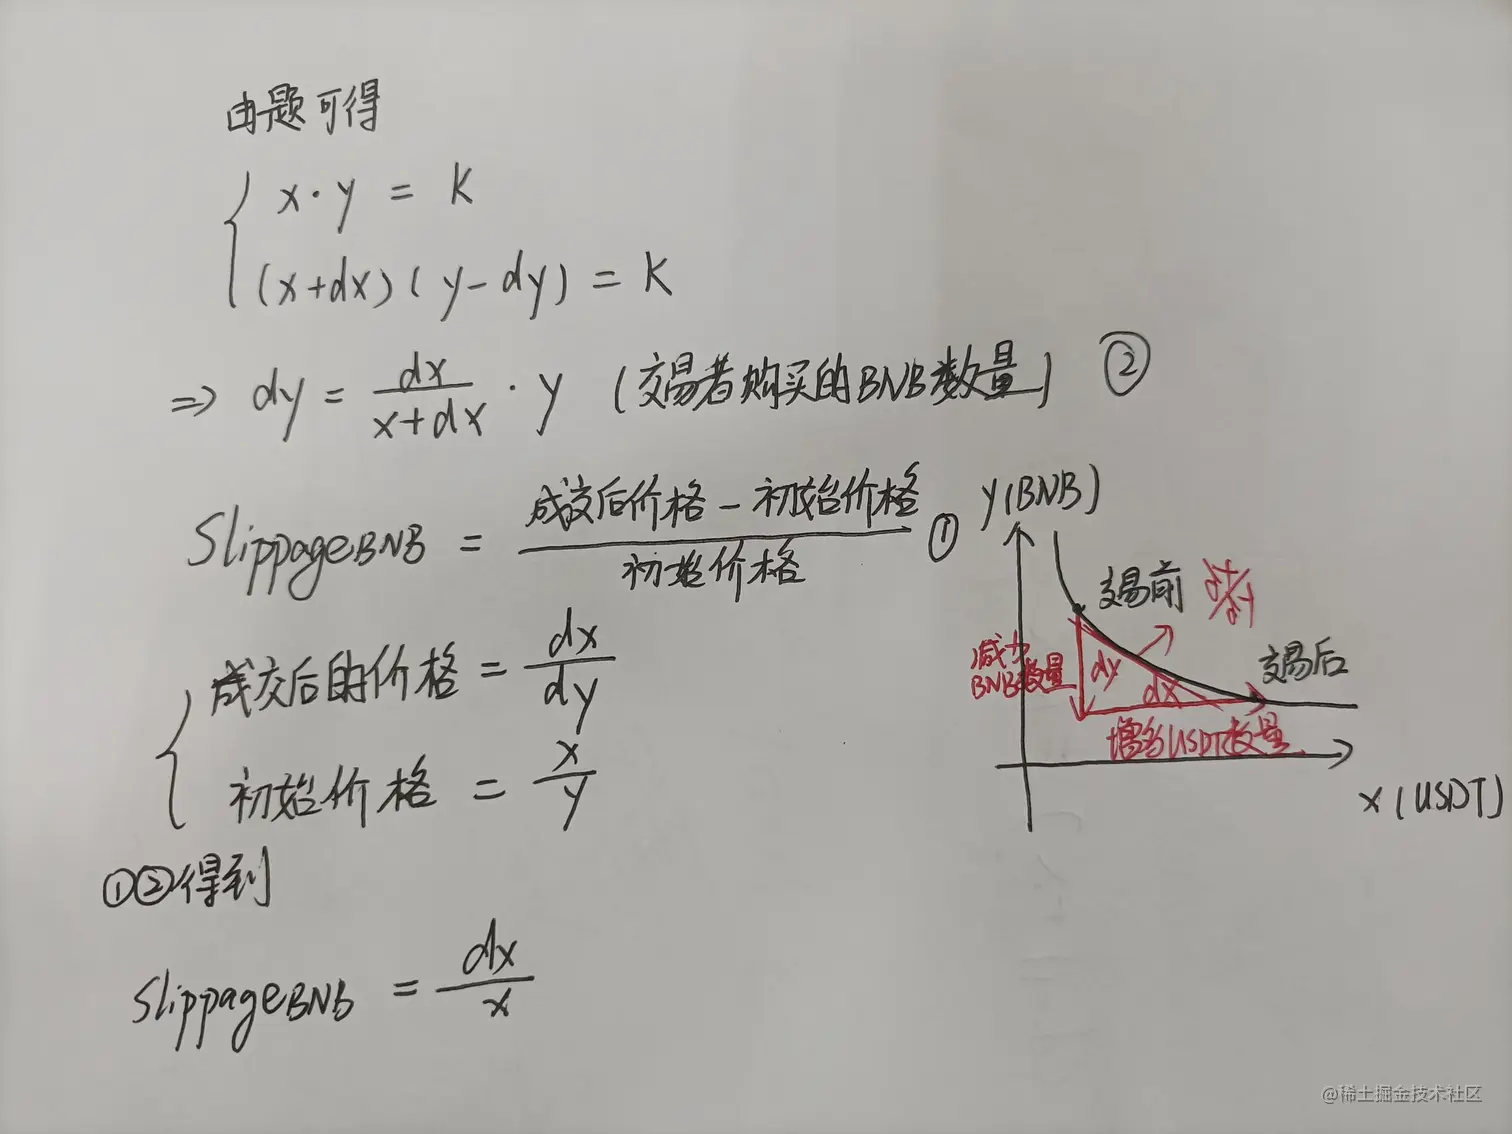 由题可得
x · y = K
(x+dx)(y-dy) = K
=> dy = dx/(x+dx) · y (交易者购买的BNB数量) ②
SlippageBNB = (成交后价格 - 初始价格)/初始价格 ①
成交后的价格 = dx/dy
初始价格 = x/y
①②得到
SlippageBNB = dx/x
y(BNB)
交易前
交易后
减少
BNB数量
dy
dx
增多USDT数量
x(USDT)
@稀土掘金技术社区